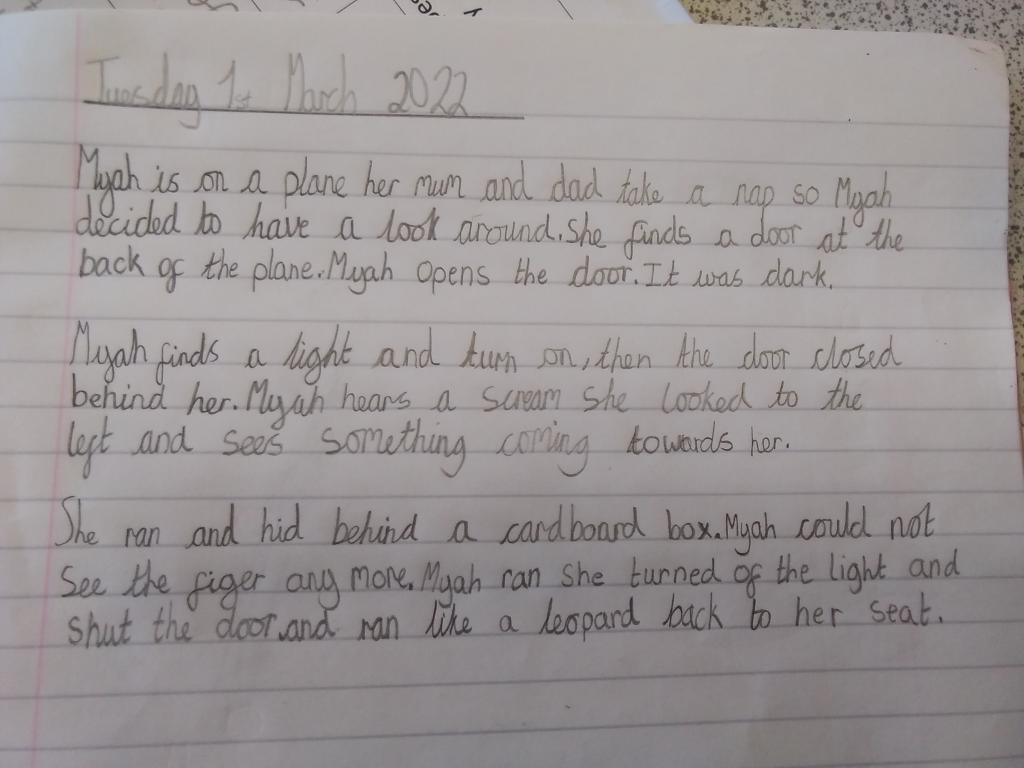 Tuesday 1st March 2022
Myah is on a plane her mum and dad take a nap so Myah
decided to have a look around. She finds a door at the
back of the plane. Myah opens the door. It was dark.
Myah finds a light and turn on, then the door closed
behind her. Myah hears a scream she looked to the
left and sees something coming towards her.
She ran and hid behind a cardboard box. Myah could not
see the figer any more. Myah ran she turned of the light and
shut the door.and ran like a leopard back to her seat.